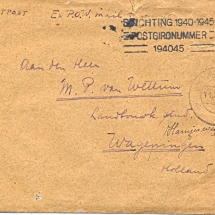 TPOST E. P.O.V. mail
STICHTING 1940-1945
POSTGIRONUMMER
194045
Aan den Heer
M. P. van Wettum
Landbouwk. stud.
Wageningen
Holland